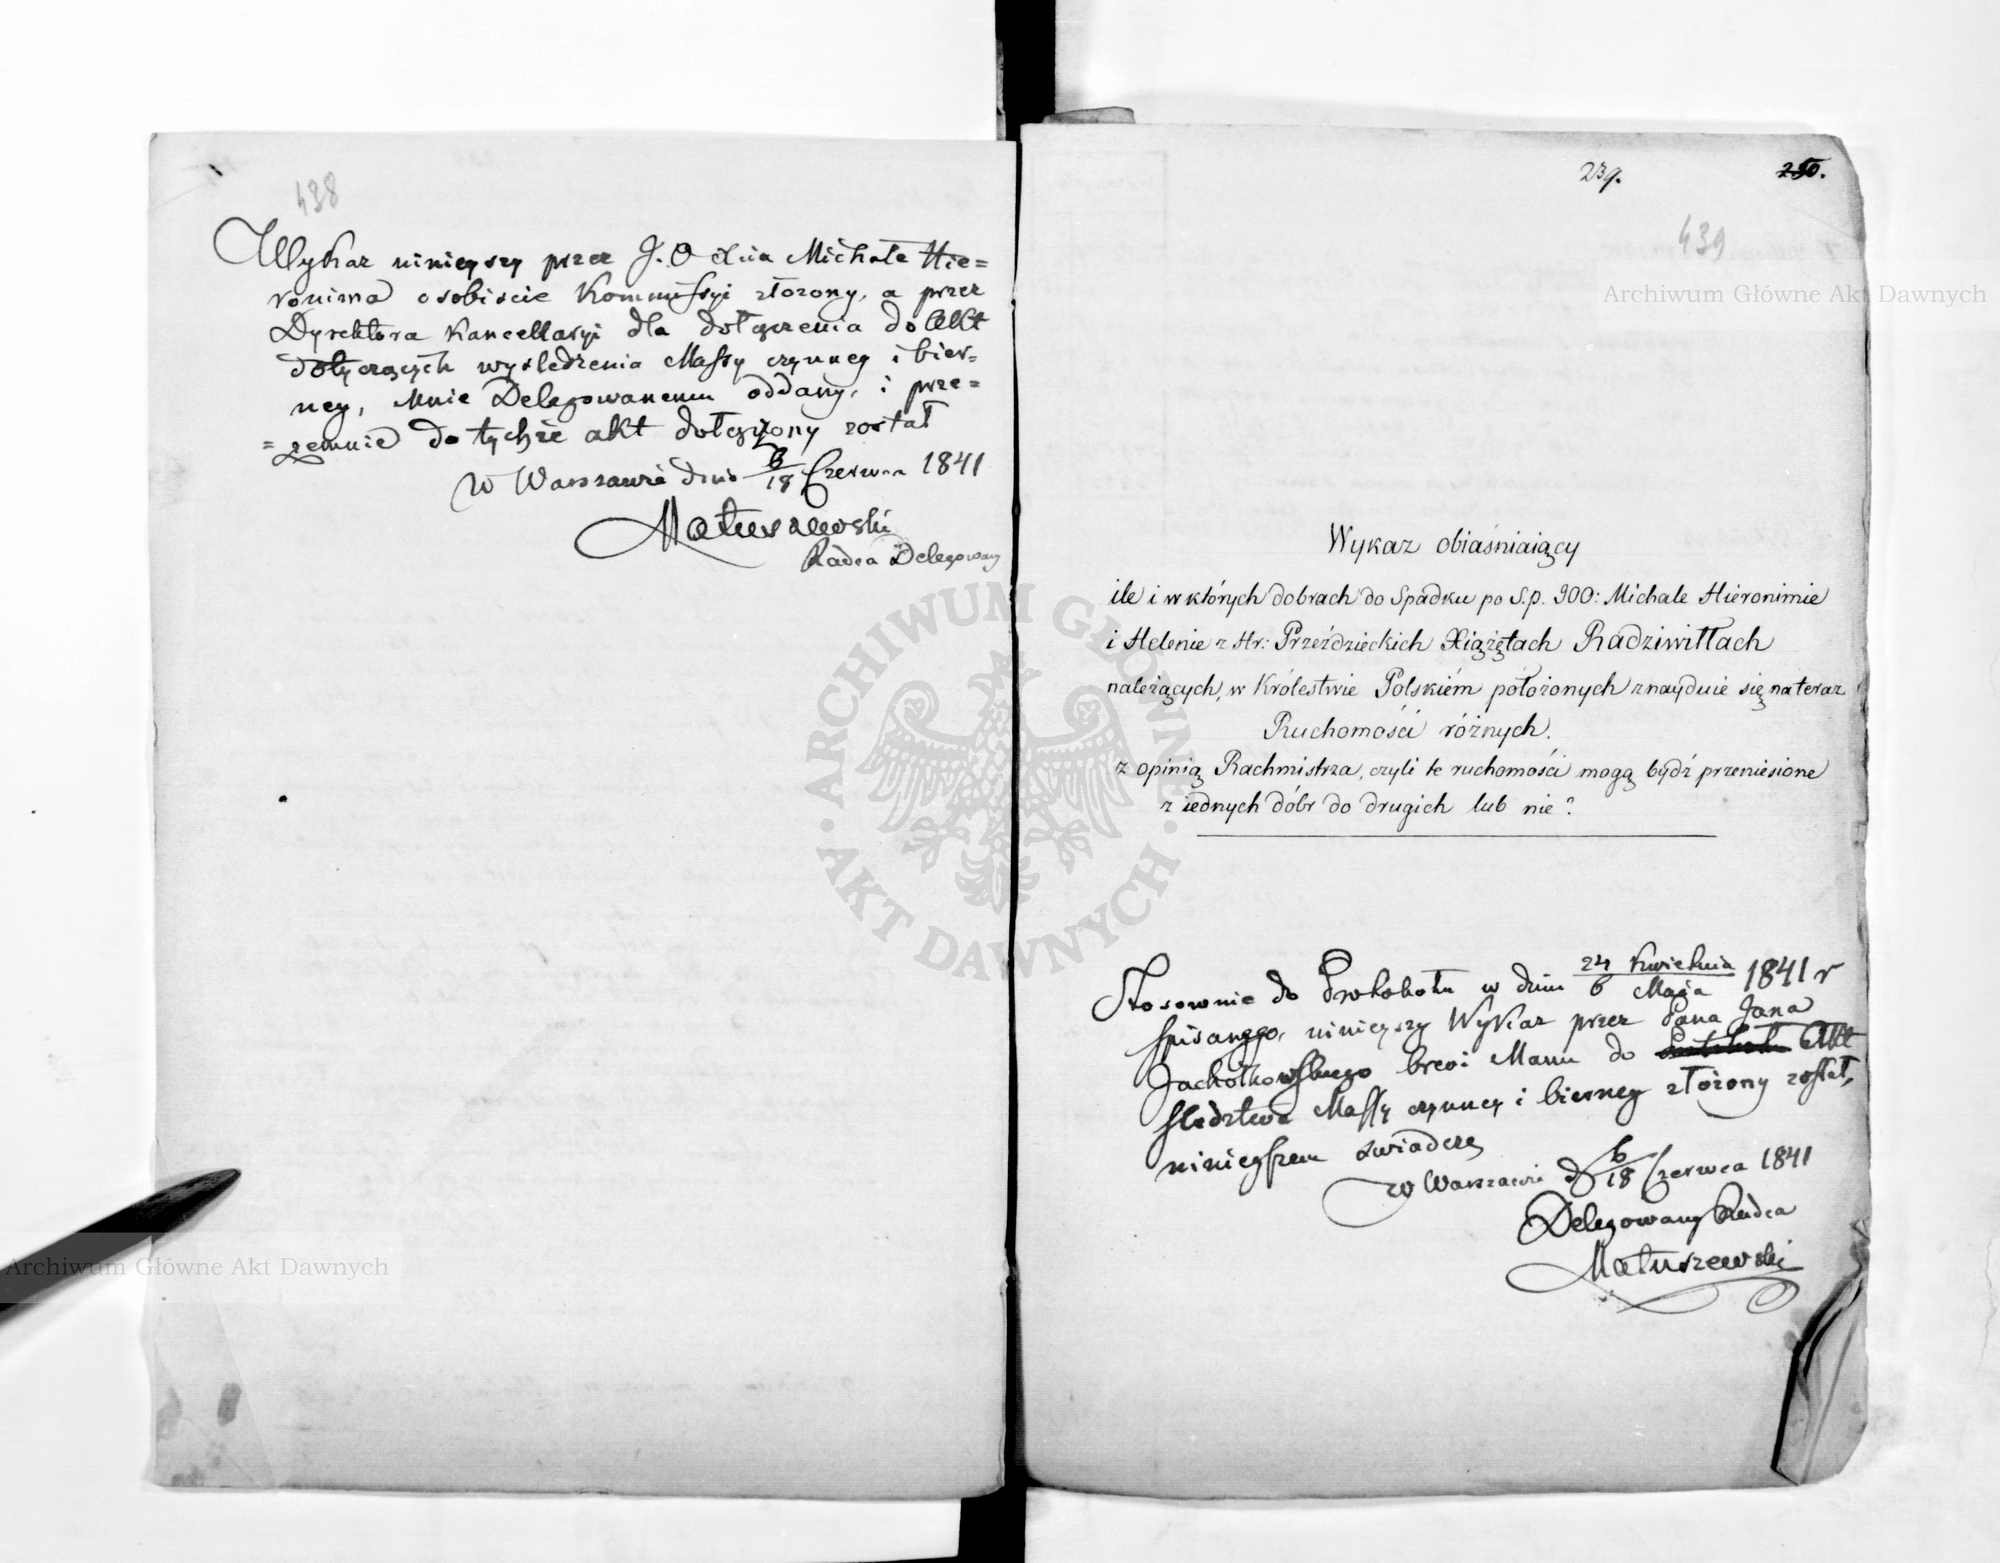 438
Wykaz ninieyszy przez J. O Xcia Michała Hie=
ronima osobiscie Kommissyi złozony, a przez
Dyrektora Kancellaryi dla dołączenia do Akt
dotyczących wysledzenia Massy czynney i bier=
ney, Mnie Delegowanemu oddany, i prze=
=zemnie do tychże akt dołączony został
w Warszawie dnia 6/18 Czerwca 1841
Matuszewski
Radca Delegowany
239.
250.
439
Wykaz obiaśniaiący
ile i w których dobrach do Spadku po S.p. JOO: Michale Hieronimie
i Helenie z Hr: Przeździeckich Xiążętach Radziwiłłach
należących, w Królestwie Polskiém położonych znayduie się na teraz
Ruchomości różnych.
z opinią Rachmistrza, czyli te ruchomości mogą bydź przeniesione
z iednych dóbr do drugich lub nie?
Stosownie do Protokołu w dniu 24 Kwietnia / 6 Maja 1841 r
spisanego, ninieyszy Wykaz przez Pana Jana
Jachołkowskiego brevi Manu do Akt
sledztwa Massy czynney i bierney złożony został,
ninieyszem swiadczę
w Warszawie d 6/18 Czerwca 1841
Delegowany Radca
Matuszewski
Archiwum Główne Akt Dawnych
Archiwum Główne Akt Dawnych
ARCHIWUM GŁÓWNE AKT DAWNYCH